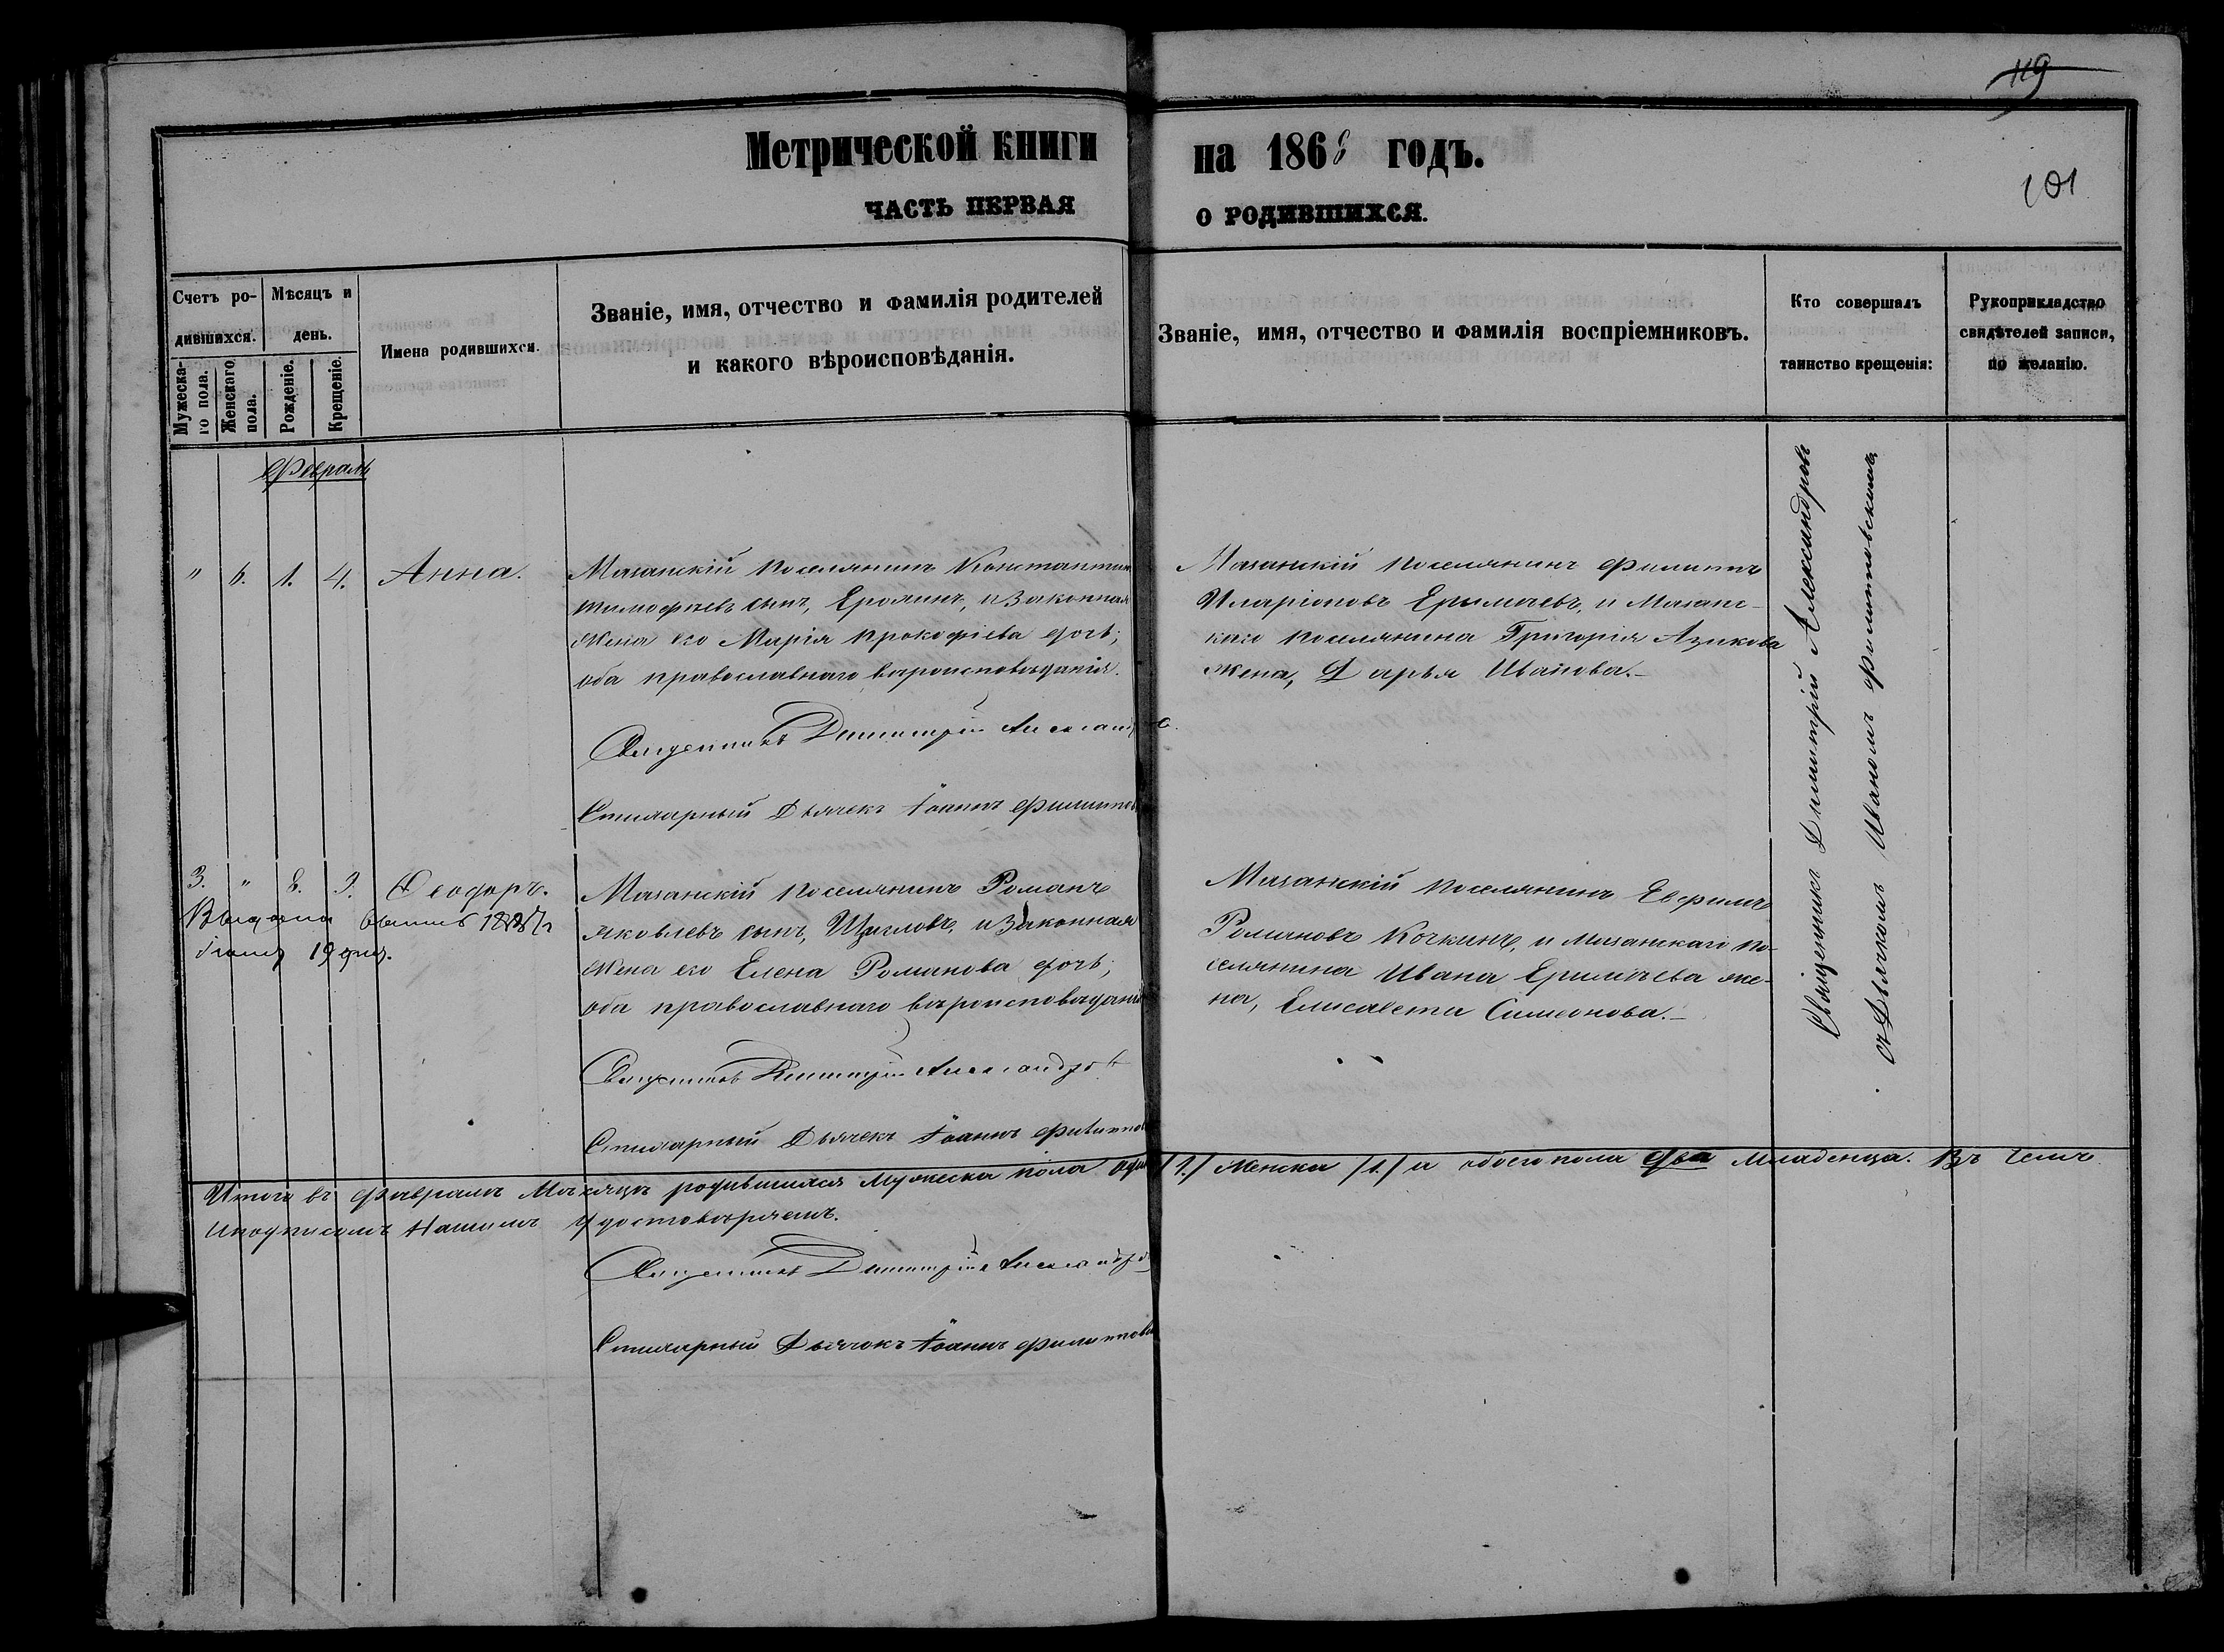 119
Метрической книги на 1868 годъ.
101
ЧАСТЬ ПЕРВАЯ О РОДИВШИХСЯ.
Счетъ ро-
дившихся.
Мѣсяцъ и
день.
Мужеска-
го пола.
Женскаго
пола.
Рожденіе.
Крещеніе.
Имена родившихся.
Званіе, имя, отчество и фамилія родителей
и какого вѣроисповѣданія.
Званіе, имя, отчество и фамилія воспріемниковъ.
Кто совершалъ
таинство крещенія:
Рукоприкладство
свидѣтелей записи,
по желанію.
Февраль
" 6. 1. 4. Анна.
Мазанскій поселянинъ Константинъ
Тимофѣевъ сынъ, Ерохинъ, и законная
жена его Марія Прокофіева дочь;
оба православнаго вѣроисповѣданія.
Священникъ Димитрій Александровъ
Стихарный Дьячекъ Іоаннъ Филипповъ
Мазанскій поселянинъ Филиппъ
Иларіоновъ Ермычевъ, и Мазанс-
каго поселянина Григорія Азикова
жена, Дарья Иванова.-
3. " 8. 9. Ѳеодоръ.
Выдана
19
Мазанскій поселянинъ Романъ
Яковлевъ сынъ, Щегловъ, и законная
жена его Елена Романова дочь;
оба православнаго вѣроисповѣданія
Священникъ Димитрій Александровъ
Стихарный Дьячекъ Іоаннъ Филипповъ
Мазанскій поселянинъ Евфимъ
Романовъ Кочкинъ, и Мазанскаго по-
селянина Ивана Ермычева же-
на, Елисавета Симеонова.-
Священникъ Димитрій Александровъ
съ Дьячкомъ Иваномъ Филипповскимъ
Итого въ Февралѣ Мѣсяцѣ родившихся мужеска пола одинъ /1./ женска /1./ а обоего пола два младенца. Въ чемъ
и подписомъ нашимъ удостовѣряемъ.
Священникъ Димитрій Александровъ
Стихарный Дьячокъ Іоаннъ Филипповъ